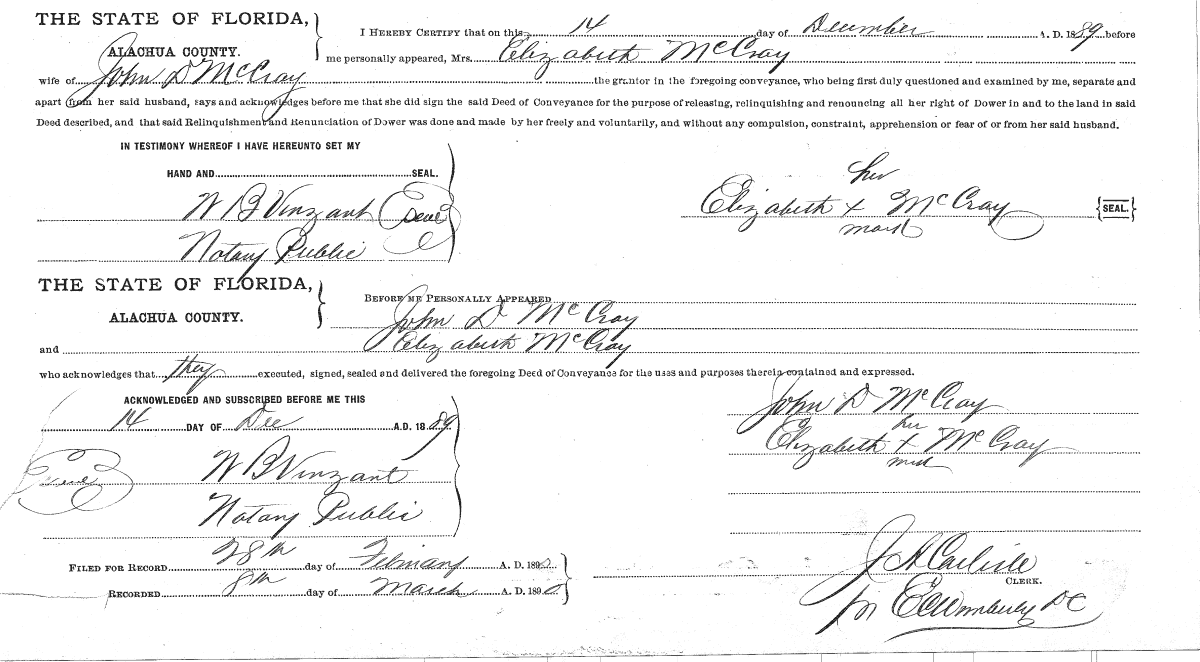 THE STATE OF FLORIDA,
ALACHUA COUNTY.
I HEREBY CERTIFY that on this 14 day of December A. D. 1889 before
me personally appeared, Mrs. Elizabeth McCray
wife of John D McCray the grantor in the foregoing conveyance, who being first duly questioned and examined by me, separate and
apart from her said husband, says and acknowledges before me that she did sign the said Deed of Conveyance for the purpose of releasing, relinquishing and renouncing all her right of Dower in and to the land in said
Deed described, and that said Relinquishment and Renunciation of Dower was done and made by her freely and voluntarily, and without any compulsion, constraint, apprehension or fear of or from her said husband.
IN TESTIMONY WHEREOF I HAVE HEREUNTO SET MY
HAND AND SEAL.
W B Vinzant Seal
Notary Public
her
Elizabeth x McCray {SEAL.}
mark
THE STATE OF FLORIDA,
ALACHUA COUNTY.
BEFORE ME PERSONALLY APPEARED
John D McCray
and Elizabeth McCray
who acknowledges that they executed, signed, sealed and delivered the foregoing Deed of Conveyance for the uses and purposes therein contained and expressed.
ACKNOWLEDGED AND SUBSCRIBED BEFORE ME THIS
14 DAY OF Dec A.D. 1889
Seal
W B Vinzant
Notary Public
John D McCray
her
Elizabeth x McCray
mark
FILED FOR RECORD 28th day of February A. D. 1890
RECORDED 8th day of March A. D. 1890
J A Carlisle
CLERK.
DC